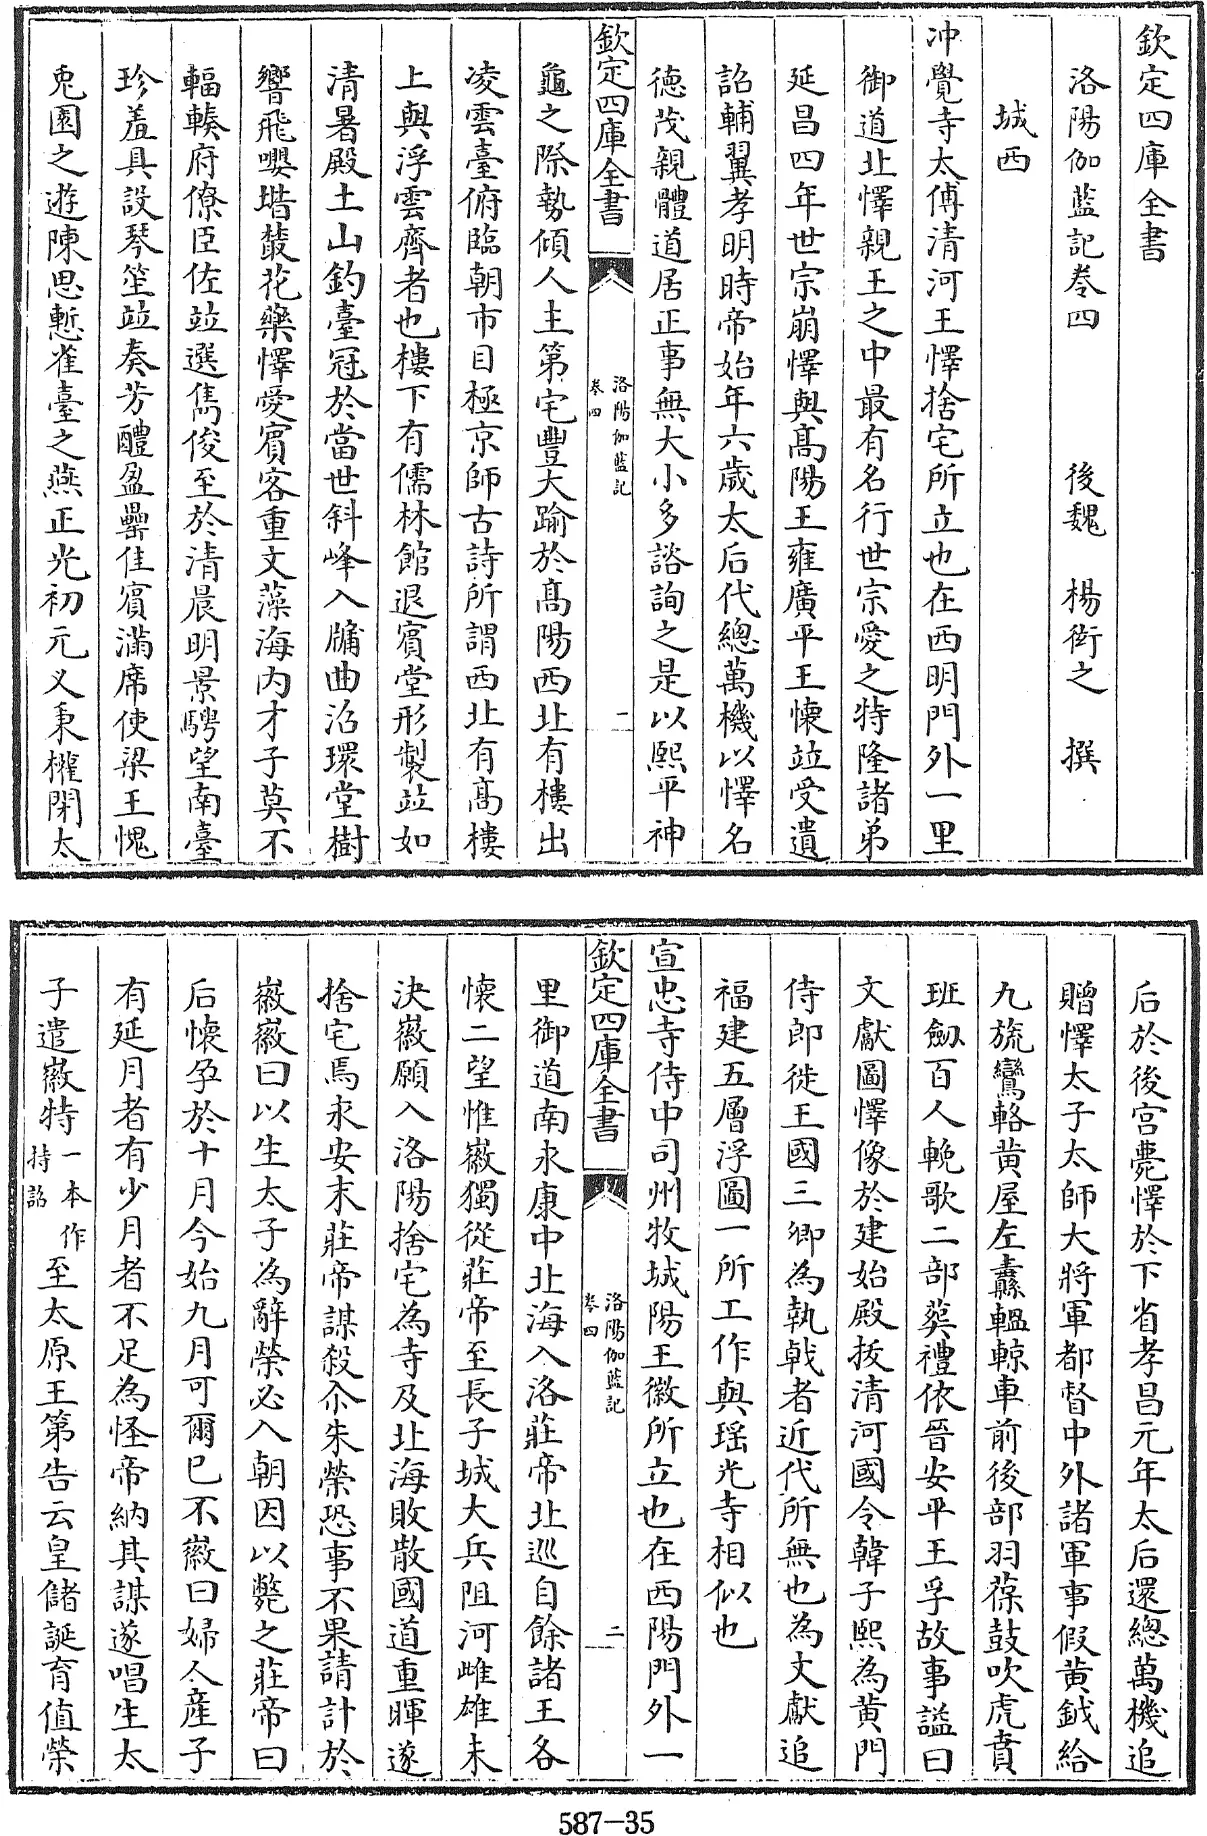 欽定四庫全書
洛陽伽藍記卷四　後魏　楊衒之　撰
城西
冲覺寺太傅清河王懌捨宅所立也在西明門外一里
御道北懌親王之中最有名行世宗愛之特隆諸弟
延昌四年世宗崩懌與髙陽王雍廣平王懐竝受遺
詔輔翼孝明時帝始年六歲太后代總萬機以懌名
德茂親體道居正事無大小多諮詢之是以熙平神
欽定四庫全書
洛陽伽藍記
卷四
一
龜之際勢傾人主第宅豐大踰於髙陽西北有樓出
凌雲臺俯臨朝市目極京師古詩所謂西北有髙樓
上與浮雲齊者也樓下有儒林館退賓堂形製竝如
清暑殿土山釣臺冠於當世斜峰入牖曲沼環堂樹
響飛嚶堦叢花藥懌愛賓客重文藻海内才子莫不
輻輳府僚臣佐竝選雋俊至於清晨明景騁望南臺
珍羞具設琴笙竝奏芳醴盈罍佳賓滿席使梁王愧
兎園之遊陳思慙雀臺之燕正光初元乂秉權閉太
后於後宫薨懌於下省孝昌元年太后還總萬機追
贈懌太子太師大將軍都督中外諸軍事假黄鉞給
九旒鸞輅黄屋左纛轀輬車前後部羽葆鼓吹虎賁
班劔百人輓歌二部葬禮依晉安平王孚故事諡曰
文獻圖懌像於建始殿拔清河國令韓子熙為黄門
侍郎徙王國三卿為執戟者近代所無也為文獻追
福建五層浮圖一所工作與瑶光寺相似也
宣忠寺侍中司州牧城陽王徽所立也在西陽門外一
欽定四庫全書
洛陽伽藍記
卷四
二
里御道南永康中北海入洛莊帝北巡自餘諸王各
懷二望惟徽獨從莊帝至長子城大兵阻河雌雄未
決徽願入洛陽捨宅為寺及北海敗散國道重暉遂
捨宅焉永安末莊帝謀殺尒朱榮恐事不果請計於
徽徽曰以生太子為辭榮必入朝因以斃之莊帝曰
后懷孕於十月今始九月可爾已不徽曰婦人產子
有延月者有少月者不足為怪帝納其謀遂唱生太
子遣徽特一本作持詔至太原王第告云皇儲誕育值榮
587-35